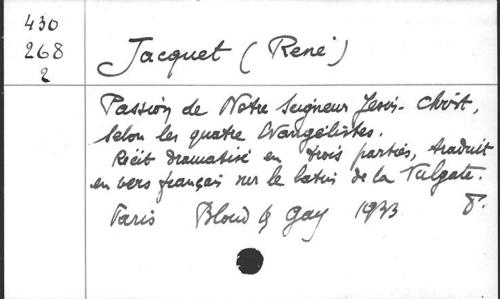 430
268
2
Jacquet (René)
Passion de Notre Seigneur Jésus-Christ,
selon les quatre Evangélistes.
Récit dramatisé en trois parties, traduit
en vers français sur le latin de la Vulgate.
Paris Bloud & Gay 1933 8°.